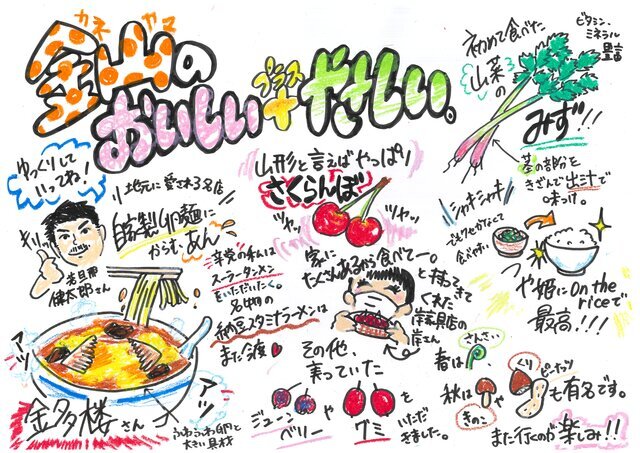 カネ ヤマ
金山の
おいしい
プラス
+
やさしい。
ゆっくりして
いってね!
キリッ
若旦那
健太郎さん
地元に愛される名店
自家製卵麺に
からむ、あん
辛党の私は
スーラータンメン
をいただいたく。
名物の
納豆スタミナラーメンは
また次
アツ
アツ
金多楼さん
ふわっふわ卵と
大きい具材
山形と言えばやっぱり
さくらんぼ
ツヤッ
ツヤッ
家に
たくさんあるから食べてー。
と持ってきて
くれた
家具店の
さん
その他、
実っていた
ジューン
ベリー
や
グミ
をいただ
きました。
初めて食べた
山菜の
みず!!
ビタミン、
ミネラル
豊富
茎の部分を
きざんで出汁で
味つけ。
シャキシャキ
でもクセがなくて
食べやすい
つや姫に on the
riceで
最高!!!
春は
さんさい
秋は
きのこ
や
くり
ピーナッツ
も有名です。
また行くのが楽しみ!!